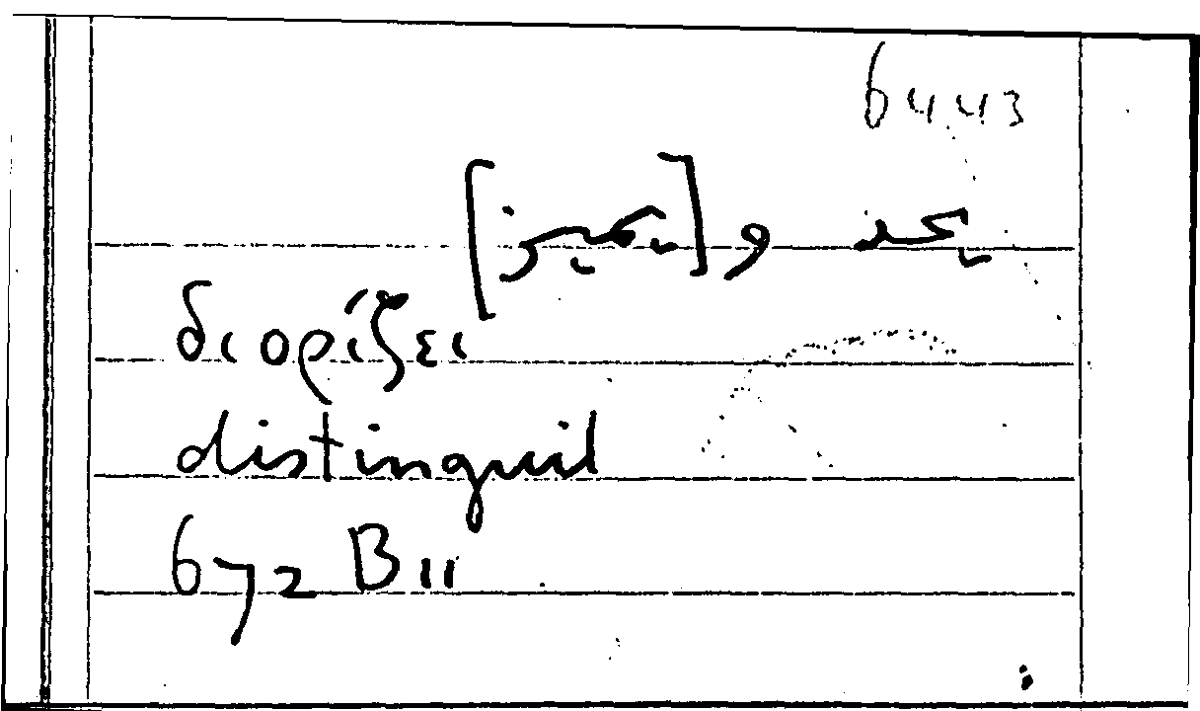 6443
يحد و[يميز]
διορίζει
distinguit
672 B 11